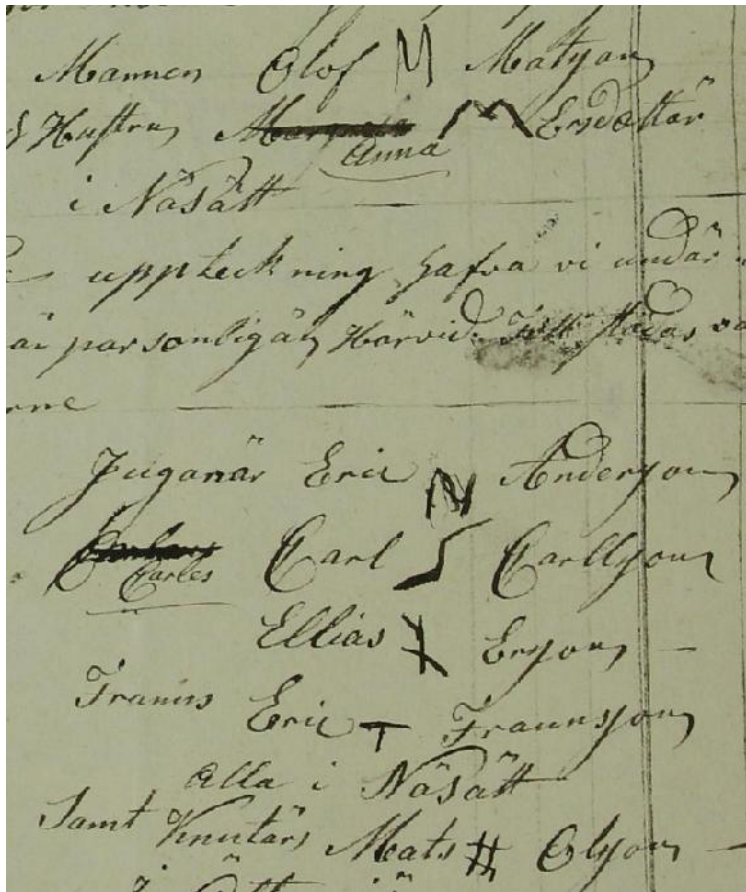 Mannen Olof Matsson
Hustrun Anna Ersdottär
i Näsätt
uppteckning hafva vi undär
är parsonligän Härvid
arne
Juganär Eric Andersson
Carles Carl Carllsson
Ellias Ersson
Franns Eric Frannsson
alla i Näsätt
Samt Knutärs Mats Olsson